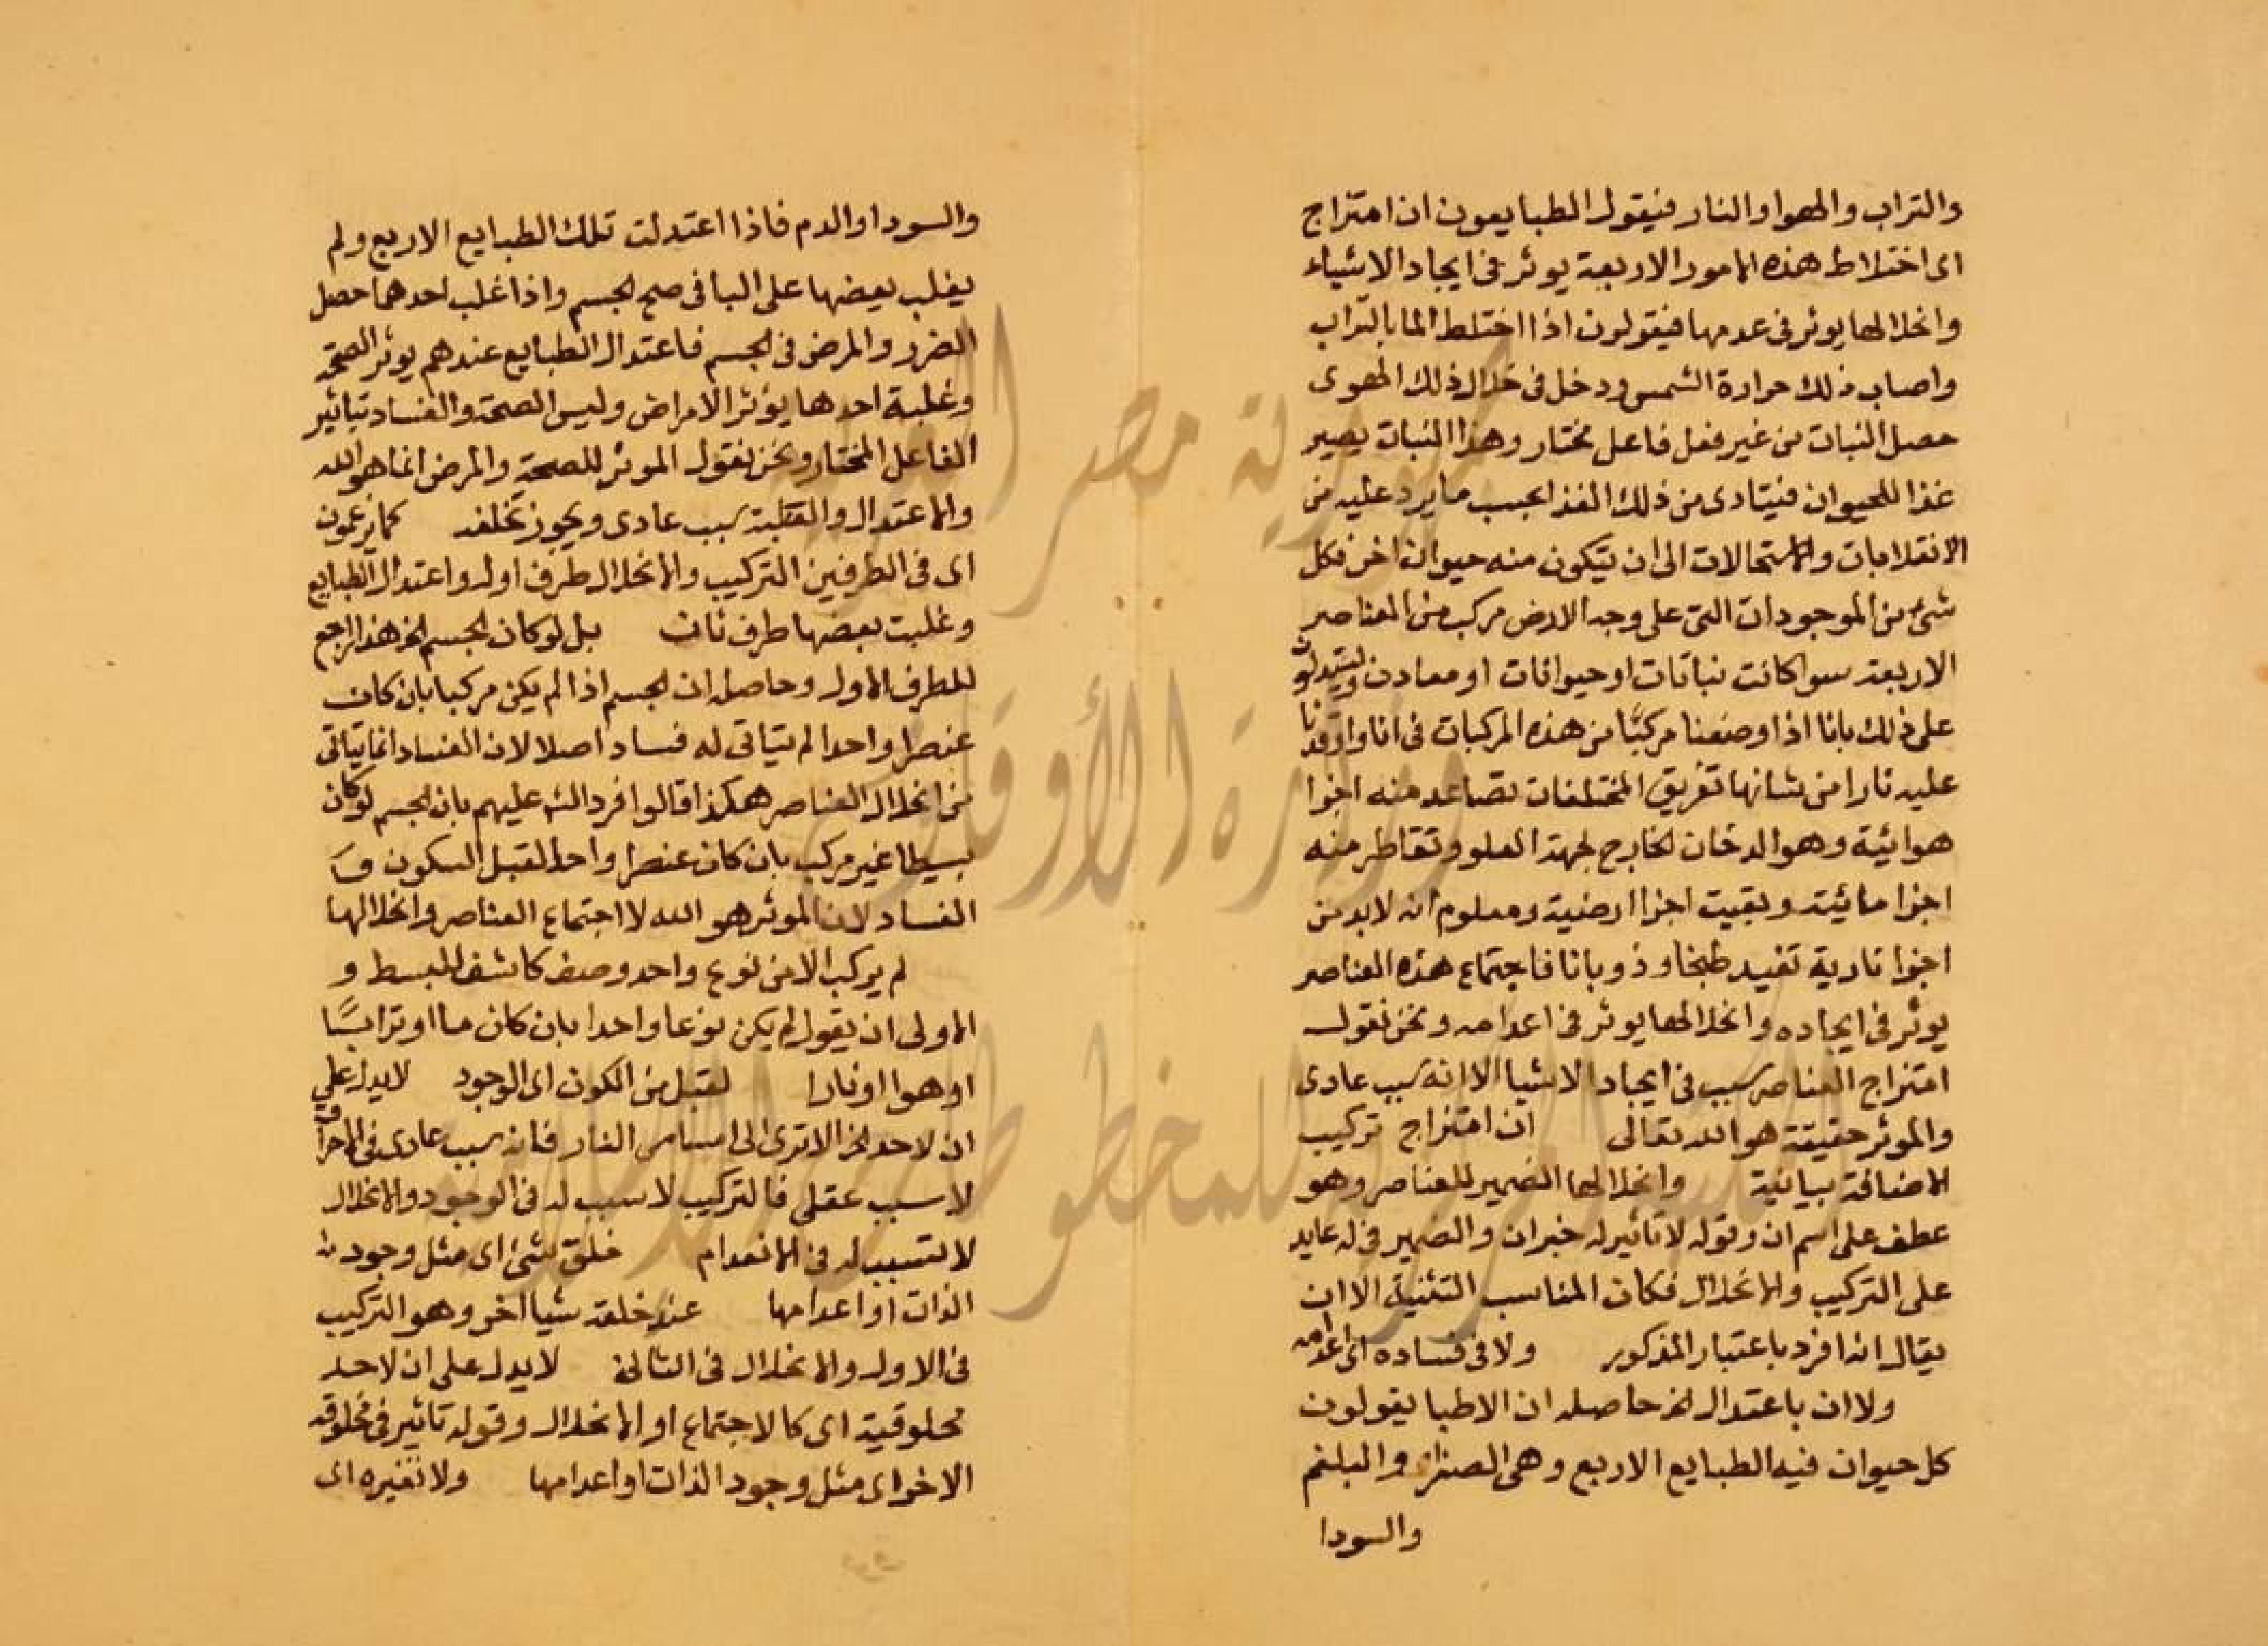 والتراب والهوا والنار فيقول الطبايعيون ان امتزاج
اى اختلاط هذه الامور الاربعة يوثر فى ايجاد الاشياء
وانحلالها يوثر فى عدمها فيقولون اذا اختلط الما بالتراب
واصاب ذلك حرارة الشمس ودخل فى خلال ذلك الهوى
حصل النبات من غير فعل فاعل مختار وهذا النبات يصير
غذا للحيوان فيتادى من ذلك الغذا بحسب ما يرد عليه من
الانقلابات والاستحالات الى ان يتكون منه حيوان اخر فكل
شئ من الموجودات التى على وجه الارض مركب من العناصر
الاربعة سوا كانت نباتات او حيوانات او معادن ويستدلون
على ذلك بانا اذا وضعنا مركبًا من هذه المركبات فى انا واوقدنا
عليه نارا من شانها تفريق المختلفات تصاعد منه اجزا
هوائية وهو الدخان الخارج لجهة العلو وتقاطر منه
اجزا مائية وبقيت اجزا ارضية ومعلوم انه لابد من
اجزا نارية تفيد طبخا وذوبانا فاجتماع هذه العناصر
يوثر فى ايجاده وانحلالها يوثر فى اعدامه ونحن نقول
امتزاج العناصر سبب فى ايجاد الاشيا الا انه سبب عادى
والموثر حقيقة هو الله تعالى ان امتزاج تركيب
الاضافة بيانية وانحلالها الضمير للعناصر وهو
عطف على اسم ان وقوله لا تاثير له خبر ان والضمير فى له عايد
على التركيب والانحلال فكان المناسب التثنية الا ان
يقال انه افرد باعتبار المذكور ولا فى فساده اى اعدامه
ولا ان باعتدال الخ حاصله ان الاطبا يقولون
كل حيوان فيه الطبايع الاربع وهى الصفرا والبلغم
والسودا
والسودا والدم فاذا اعتدلت تلك الطبايع الاربع ولم
يغلب بعضها على الباقى صح الجسم واذا غلب احدهما حصل
الضرر والمرض فى الجسم فاعتدال الطبايع عندهم يوثر الصحة
وغلبة احدها يؤثر الامراض وليس الصحة والفساد بتاثير
الفاعل المختار ونحن نقول الموثر للصحة والمرض انما هو الله
والاعتدال والغلبة سبب عادى ويجوز تخلفه كما يزعمون
اى فى الطرفين التركيب والانحلال طرف اول واعتدال الطبايع
وغلبت بعضها طرف ثان بل لو كان الجسم الخ هذا راجع
للطرف الاول وحاصله ان الجسم اذا لم يكن مركبا بان كان
عنصرا واحدا لم يتاتى له فساد اصلا لان الفساد انما يتاتى
من انحلال العناصر هكذا قالوا فرد عليهم بان الجسم لو كان
بسيطا غير مركب بان كان عنصرا واحدا لقبل السكون
الفساد لان الموثر هو الله لا اجتماع العناصر وانحلالها
لم يركب الا من نوع واحد وصف كاشف للبسط و
الاولى ان يقول لم يكن نوعا واحدا بان كان ما او ترابًا
او هوا او نارا لقبل من الكون اى الوجود لا يدل على
ان لاحد الخ الا ترى الى امساس النار فانه سبب عادى فى الاحراق
لا سبب عقلى فالتركيب لا سبب له فى الوجود والانحلال
لا تسبب له فى الانعدام خلق شئ اى مثل وجود
الذات او اعدامها عند خلقه شيا اخر وهو التركيب
فى الاول والانحلال فى الثانى لا يدل على ان لاحد
مخلوقية اى كالاجتماع او الانحلال وقوله تاثير فى مخلوقه
الاخر اى مثل وجود الذات او اعدامها ولا تغيره اى
جمهورية مصر العربية
وزارة الأوقاف
المكتبة المركزية للمخطوطات الإسلامية